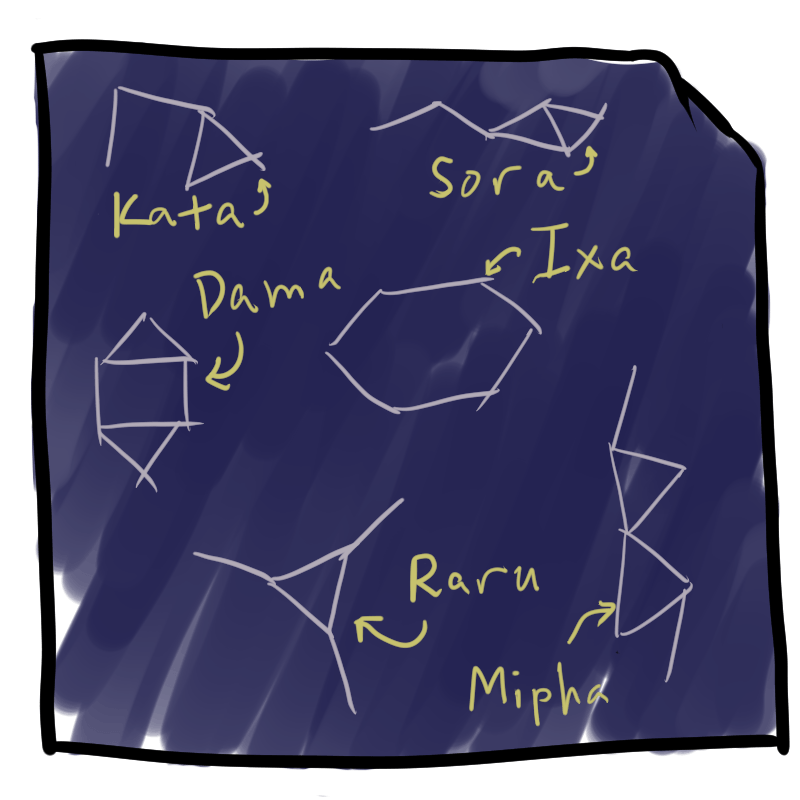 Kata
Sora
Ixa
Dama
Raru
Mipha